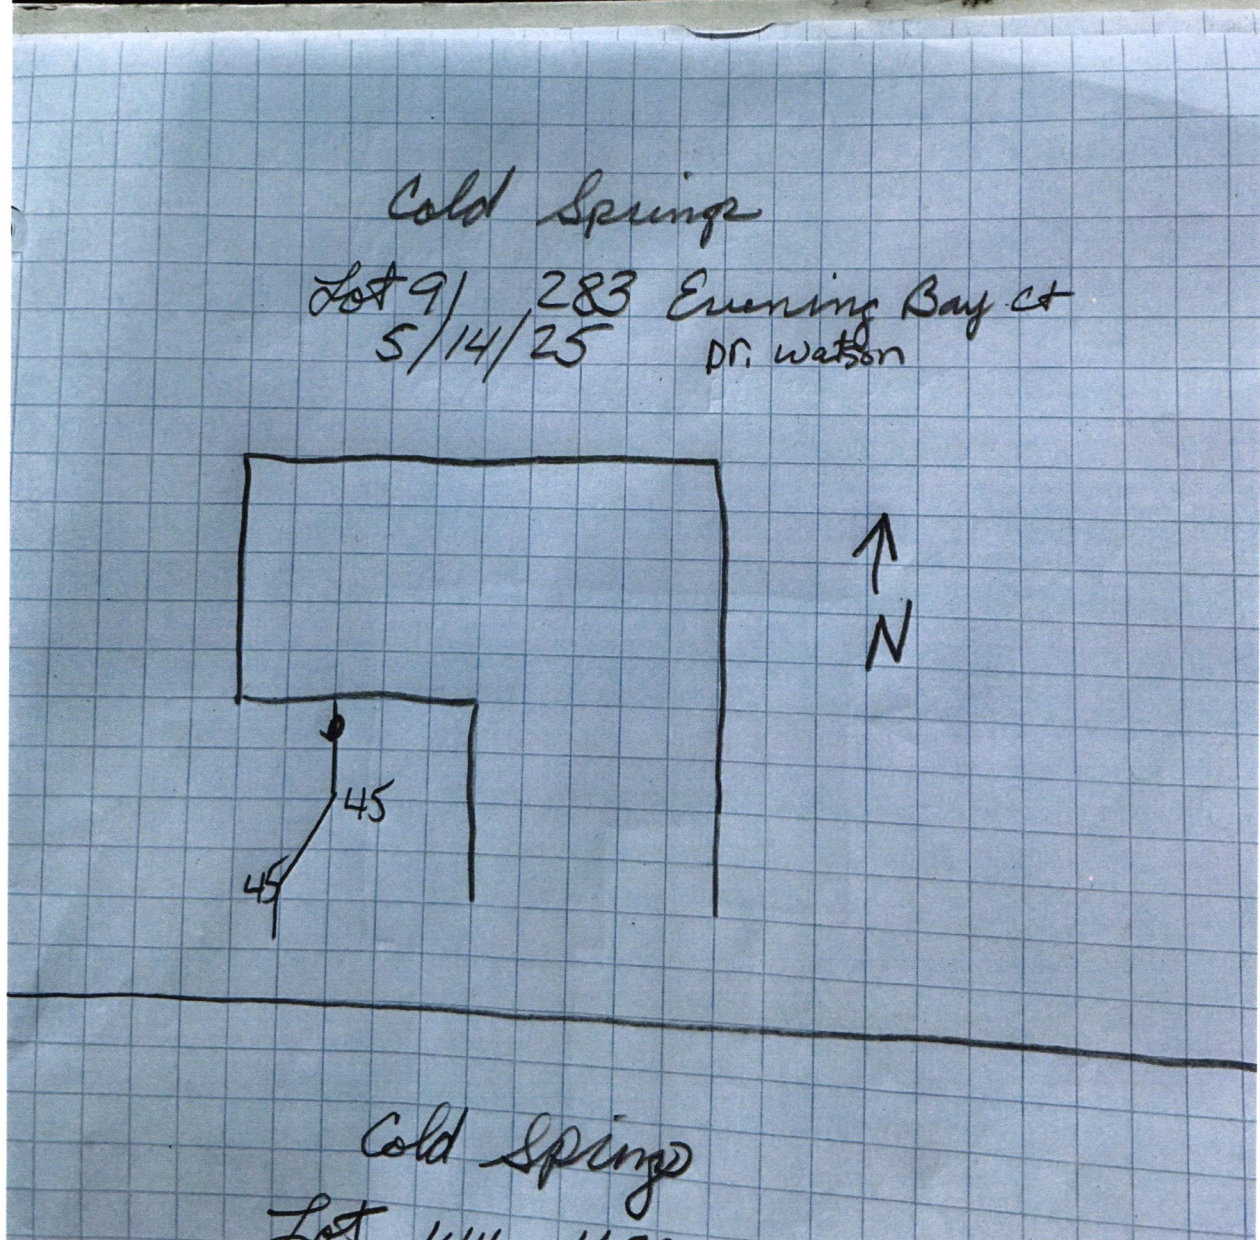 Cold Springs
Lot 91 283 Evening Bay Ct
5/14/25 Dr. Watson
N
45
45
Cold Springs
Lot